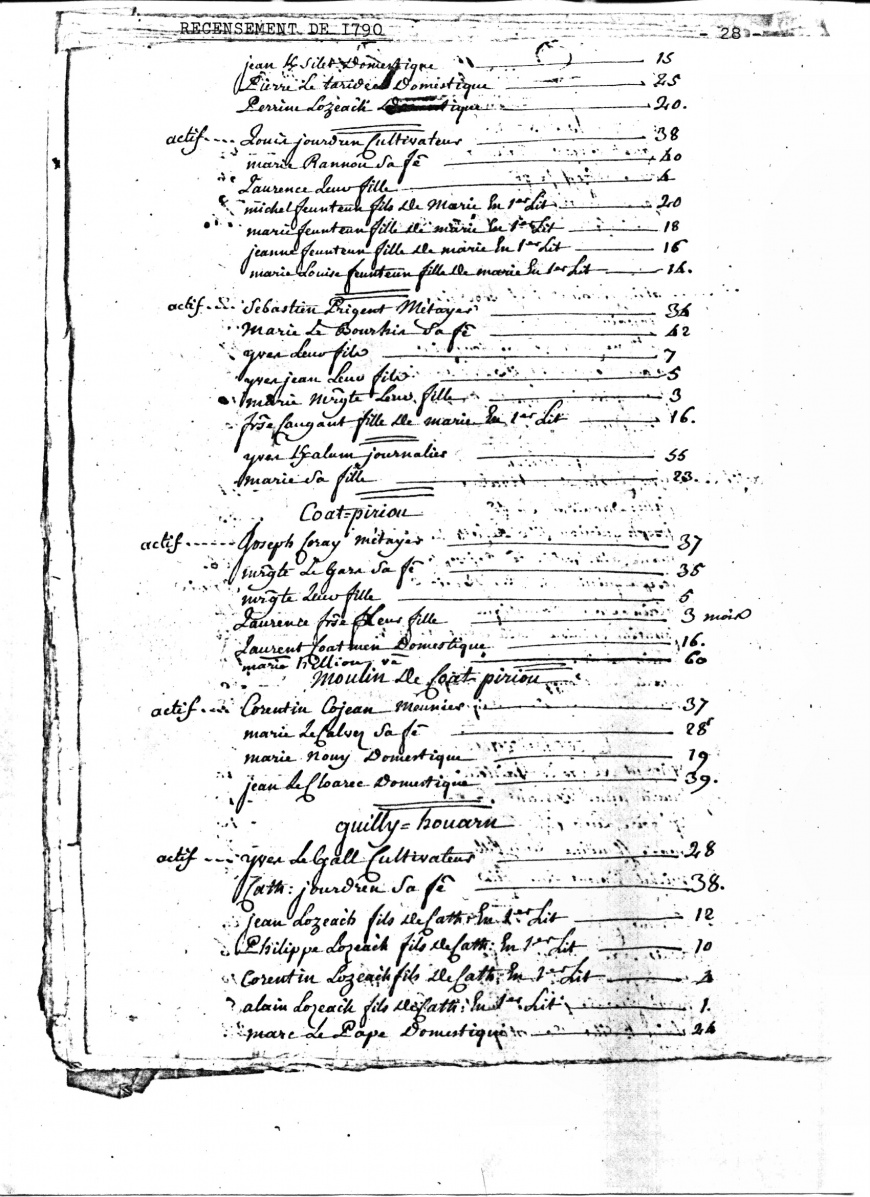 RECENSEMENT DE 1790 - 28 -
jean Silet Domestique 15
Pierre Le taridec Domestique 25
Perrine Lozeach Domestique 20.
actif Louis jourdren Cultivateur 38
marie Rannou Sa fe 40
Laurence Leur fille 4
michel feunteun fils de Marie En 1er Lit 20
marie feunteun fille de marie En 1er Lit 18
jeanne feunteun fille de marie En 1er Lit 16
marie Louise feunteun fille de marie En 1er Lit 14.
actif Sebastien Prigent Métayer 34
Marie Le Bourhis Sa fe 42
yves Leur fils 7
yves jean Leur fils 5
marie mrgte Leur fille 3
frse Caugant fille de marie En 1er Lit 16.
yves journalier 55
marie Sa fille 23.
Coat=piriou
actif Joseph Coray Métayer 37
mrgte Le Gars Sa fe 35
mrgte Leur fille 5
Laurence frse Leur fille 3 mois
Laurent Coatmen Domestique 16.
marie ve 60
Moulin de Coat piriou
actif Corentin Cojean Meunier 37
marie Le Calvez Sa fe 28
marie Nouy Domestique 19
jean Le Cloarec Domestique 39.
quilly=houarn
actif yves Le Gall Cultivateur 28
Cath: jourdren Sa fe 38.
jean Lozeach fils de Cath: En 1er Lit 12
Philippe Lozeach fils de Cath: En 1er Lit 10
Corentin Lozeach fils de Cath: En 1er Lit 4
alain Lozeach fils de Cath: En 1er Lit 1.
marc Le Pape Domestique 24